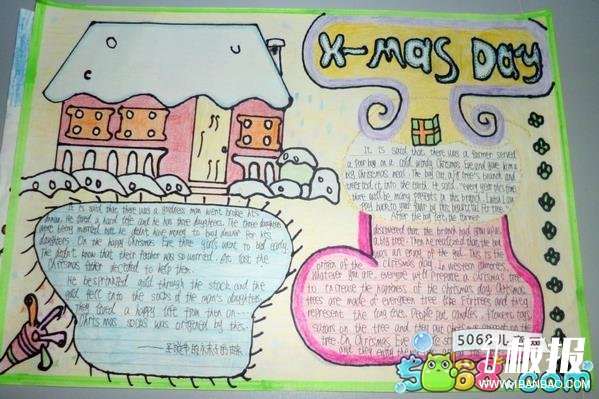 X-mas Day
It is said that there was a farmer served
a poor boy on a cold windy Christmas Eve and gave him a
big Christmas meal. The boy cut a fir tree's branch and
inserted it into the earth. He said, "every year this time
there will be many presents in this branch.
After the boy left, the farmer
discovered that the branch had grown up as
a big tree. Then he realized that the boy
was an envoy of the god. This is the
origin of the Christmas day. In western countries,
whatever you are, everyone will prepare a christmas tree
to increase the happiness of the christmas day. Christmas
trees are made of evergreen tree like fir trees and they
represent the long live. People put candles, flowers, toys
stars on the tree and they put christmas present on the
tree. On Christmas Eve
and they enjoy
It is said that there was a goodness man went broke his
The three daughters
were being married, but he didn't have money to buy dower for his
daughters. On the happy Christmas Eve three girls went to bed early.
The didn't know that their father was so worried. At last the
Christmas father decided to help them.
He besprinkled gold through the stack and the
gold fell into the socks of the man's daughters.
They loved a happy life from then on....
Christmas socks was origined by this.
5068儿
板报
5068.com
WWW.1BANBAO.COM